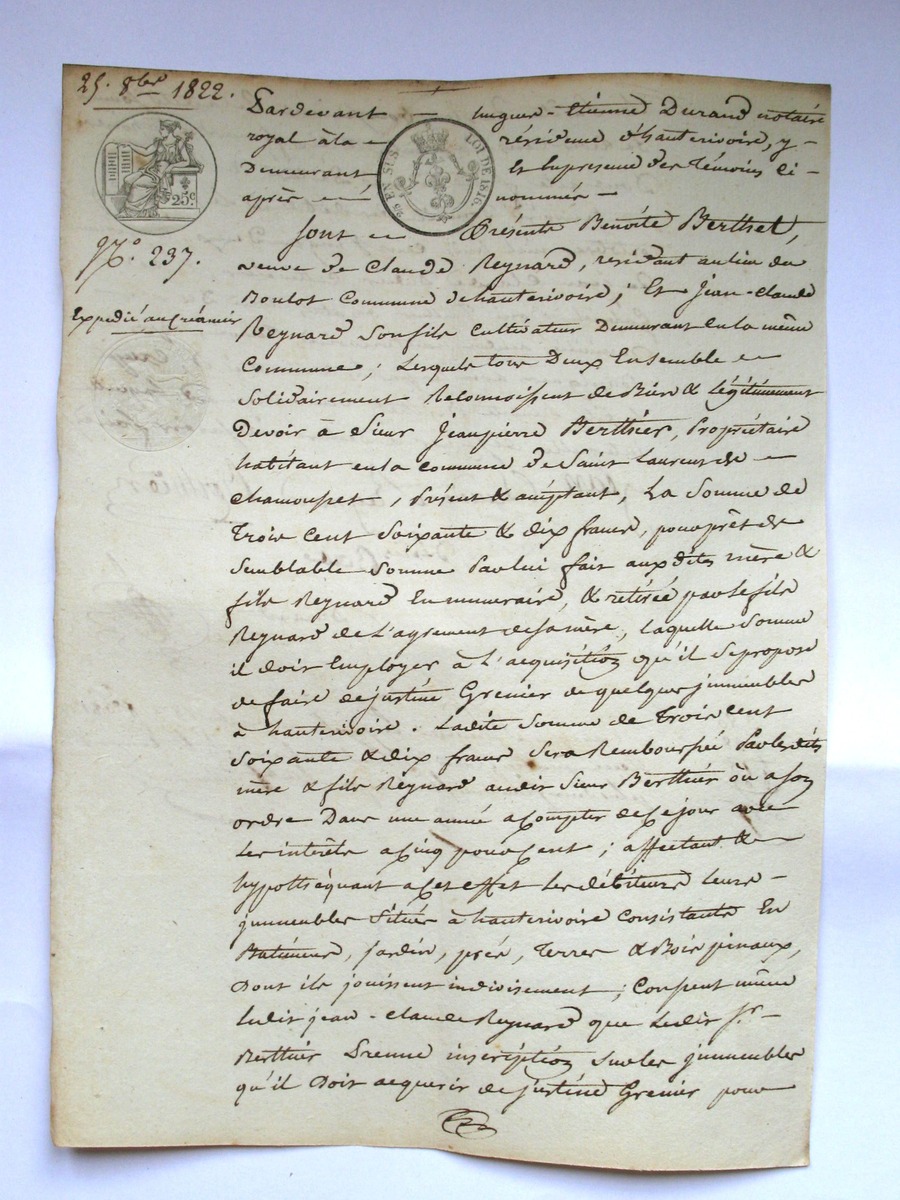 25. 8bre 1822.
25 c.
25 EN SUS LOI DE 1816.
N.o 237.
Expédié au Créancier
Pardevant — hugues-Etienne Durand notaire
royal à la — résidence d'hauterivoire, y —
Demeurant Et En presence des Témoins ci —
après — nommés —
Sont — Présents Benoite Berthet,
veuve de Claude Reynard, residant au lieu du
Boulot Commune d'hauterivoire; Et Jean-Claude
Reynard Son fils Cultivateur Demeurant En la même
Commune; Lesquels tous Deux Ensemble —
Solidairement Reconnoissent de Bien & légitimement
Devoir à Sieur Jeanpierre Berthier, Propriétaire
habitant en la commune de Saint Laurent de —
chamousset, présent & acceptant, La Somme de
Trois Cent Soixante & dix francs, pour prêt de
Semblable Somme Par lui fait aux dits mère &
fils Reynard En numeraire, & retirée par le fils
Reynard de L'agrement de sa mère, laquelle Somme
il doit Employer à L'acquisition qu'il Se propose
de faire de justine Grenier de quelques jmmeubles
à hauterivoire. Ladite Somme de Trois cent
Soixante & dix francs Sera Remboursée Par lesdits
mère & fils Reynard audit Sieur Berthier où a Son
ordre Dans une année a Compter de Ce jour avec
Les intérêts a Cinq pour Cent; affectant & —
hypothéquant a Cet effet les débiteurs leurs —
jmmeubles Situés à hauterivoire Consistants En
Batiments, jardin, prés, Terres & Bois pinaux,
Dont ils jouissent indivisement; Consent même
Ledit jean-Claude Reynard que Ledit Sr. —
Berthier Prenne inscription Sur les jmmeubles
qu'il Doit acquerir de justine Grenier pour